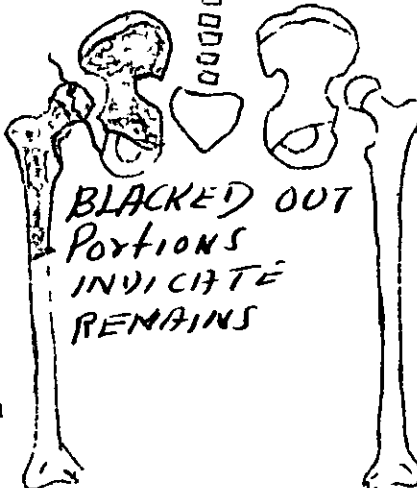 BLACKED OUT
PORTIONS
INDICATE
REMAINS